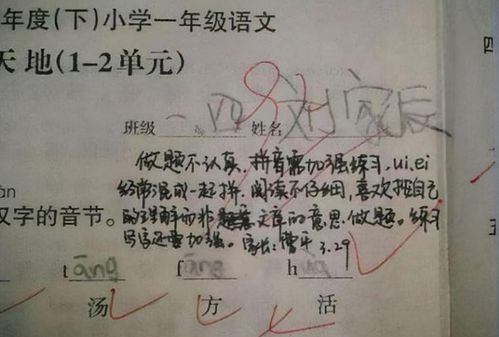 年度(下)小学一年级语文
天地(1-2单元)
四
班级 一 姓名 刘家辰
做题不认真,拼音需加强练习,ui,ei
经常混成一起拼,阅读不仔细,喜欢按自己
的理解而非 文章的意思做题。练习
汉字的音节。
写字还要加强。家长:曹平 3.29
tāng fāng h
汤 方 活